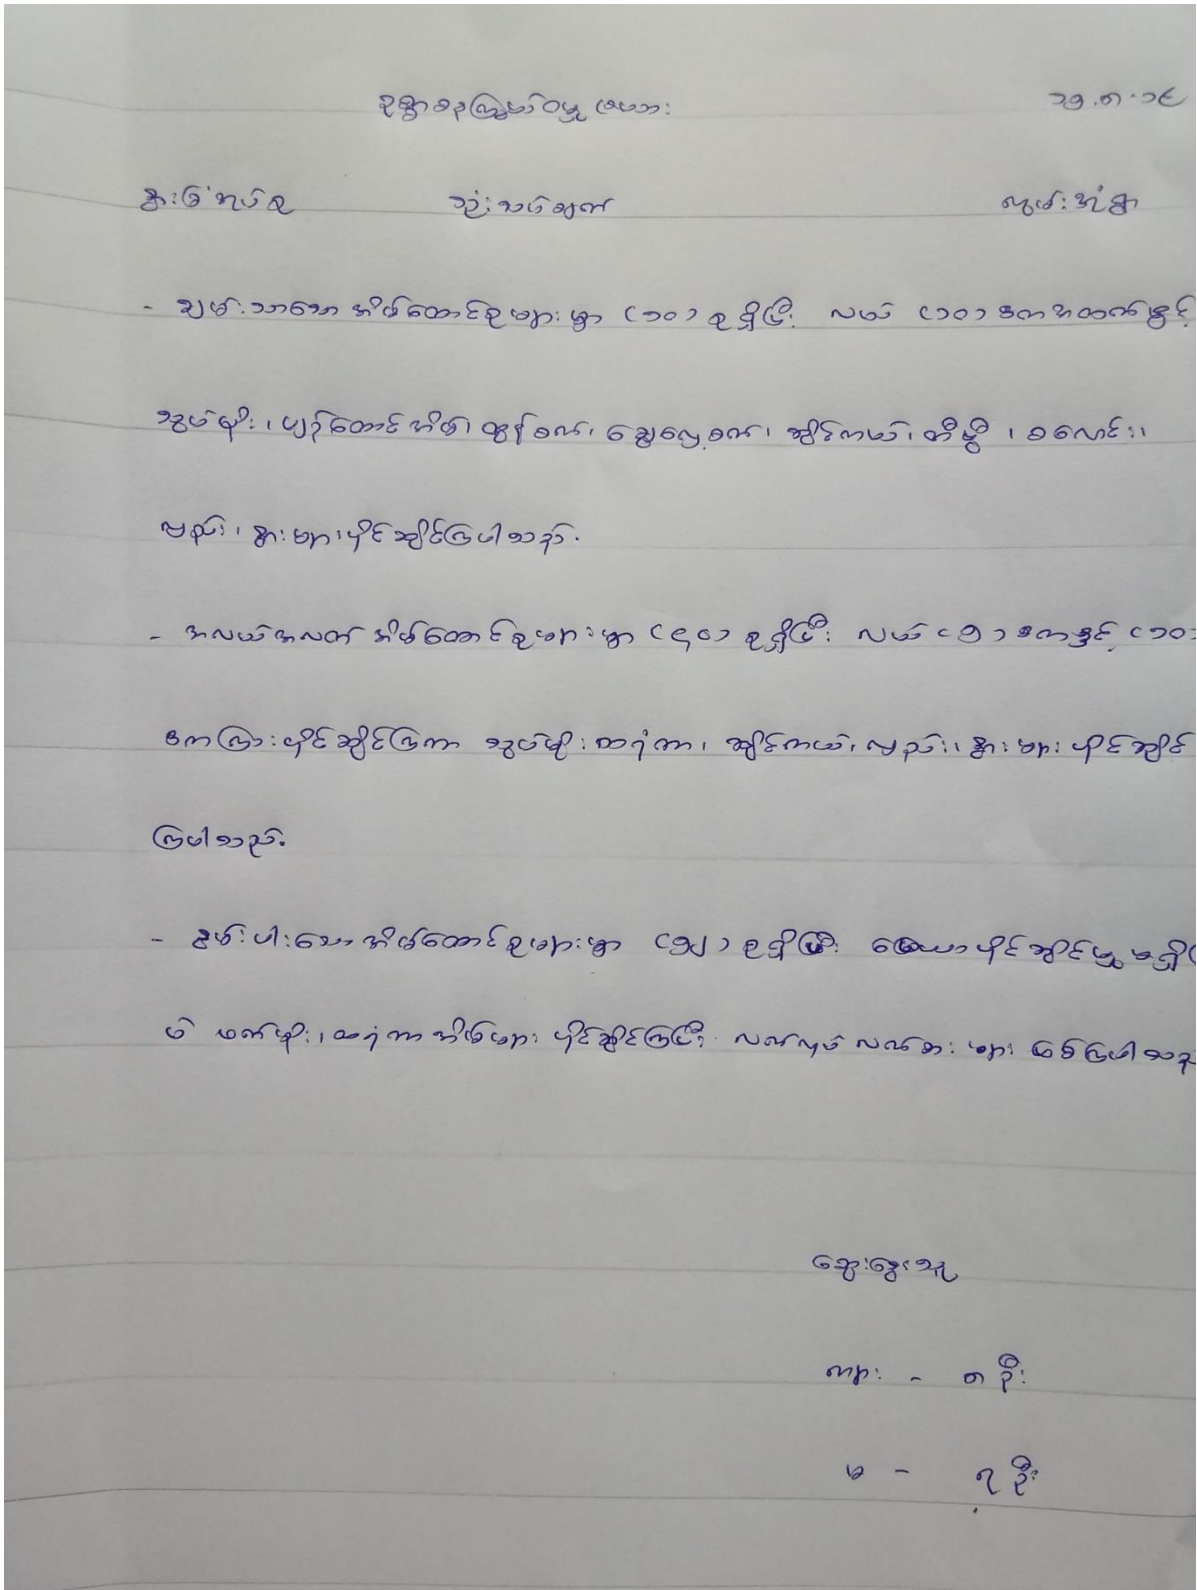 ဥစ္စာဓနကြွယ်ဝမှု ဇယား ၁၅.၈.၁၉
နွားခြံအုပ်စု သုံးသပ်ချက် ကျွမ်းအုံရွာ
- ချမ်းသာသော အိမ်ထောင်စုများမှာ (၁၀) စုရှိပြီး လယ် (၁၀) ဧကအထက်နှင့်
သွပ်မိုး၊ ပျဉ်ထောင်အိမ်၊ ထွန်စက်၊ ခြွေလှေ့စက်၊ ဆိုင်ကယ်၊ တီဗွီ ၊ စလောင်း၊
လှည်း၊ နွားများပိုင်ဆိုင်ကြပါသည်.
- အလယ်အလတ် အိမ်ထောင်စုများမှာ (၄၀) စုရှိပြီး လယ် (၅) ဧကနှင့် (၁၀)
ဧကကြားပိုင်ဆိုင်ကြကာ သွပ်မိုး ထရံကာ၊ ဆိုင်ကယ်၊ လှည်း၊ နွားများ ပိုင်ဆိုင်
ကြပါသည်.
- နွမ်းပါးသော အိမ်ထောင်စုများမှာ (၅၂) စုရှိပြီး မြေယာပိုင်ဆိုင်မှု မရှိ
ပဲ ဖက်မိုး၊ ထရံကာအိမ်များ ပိုင်ဆိုင်ကြပြီး လက်လုပ် လက်စား များ ဖြစ်ကြပါသည်
ဆွေးနွေးသူ
ကျား - ၈ ဦး
မ - ၇ ဦး